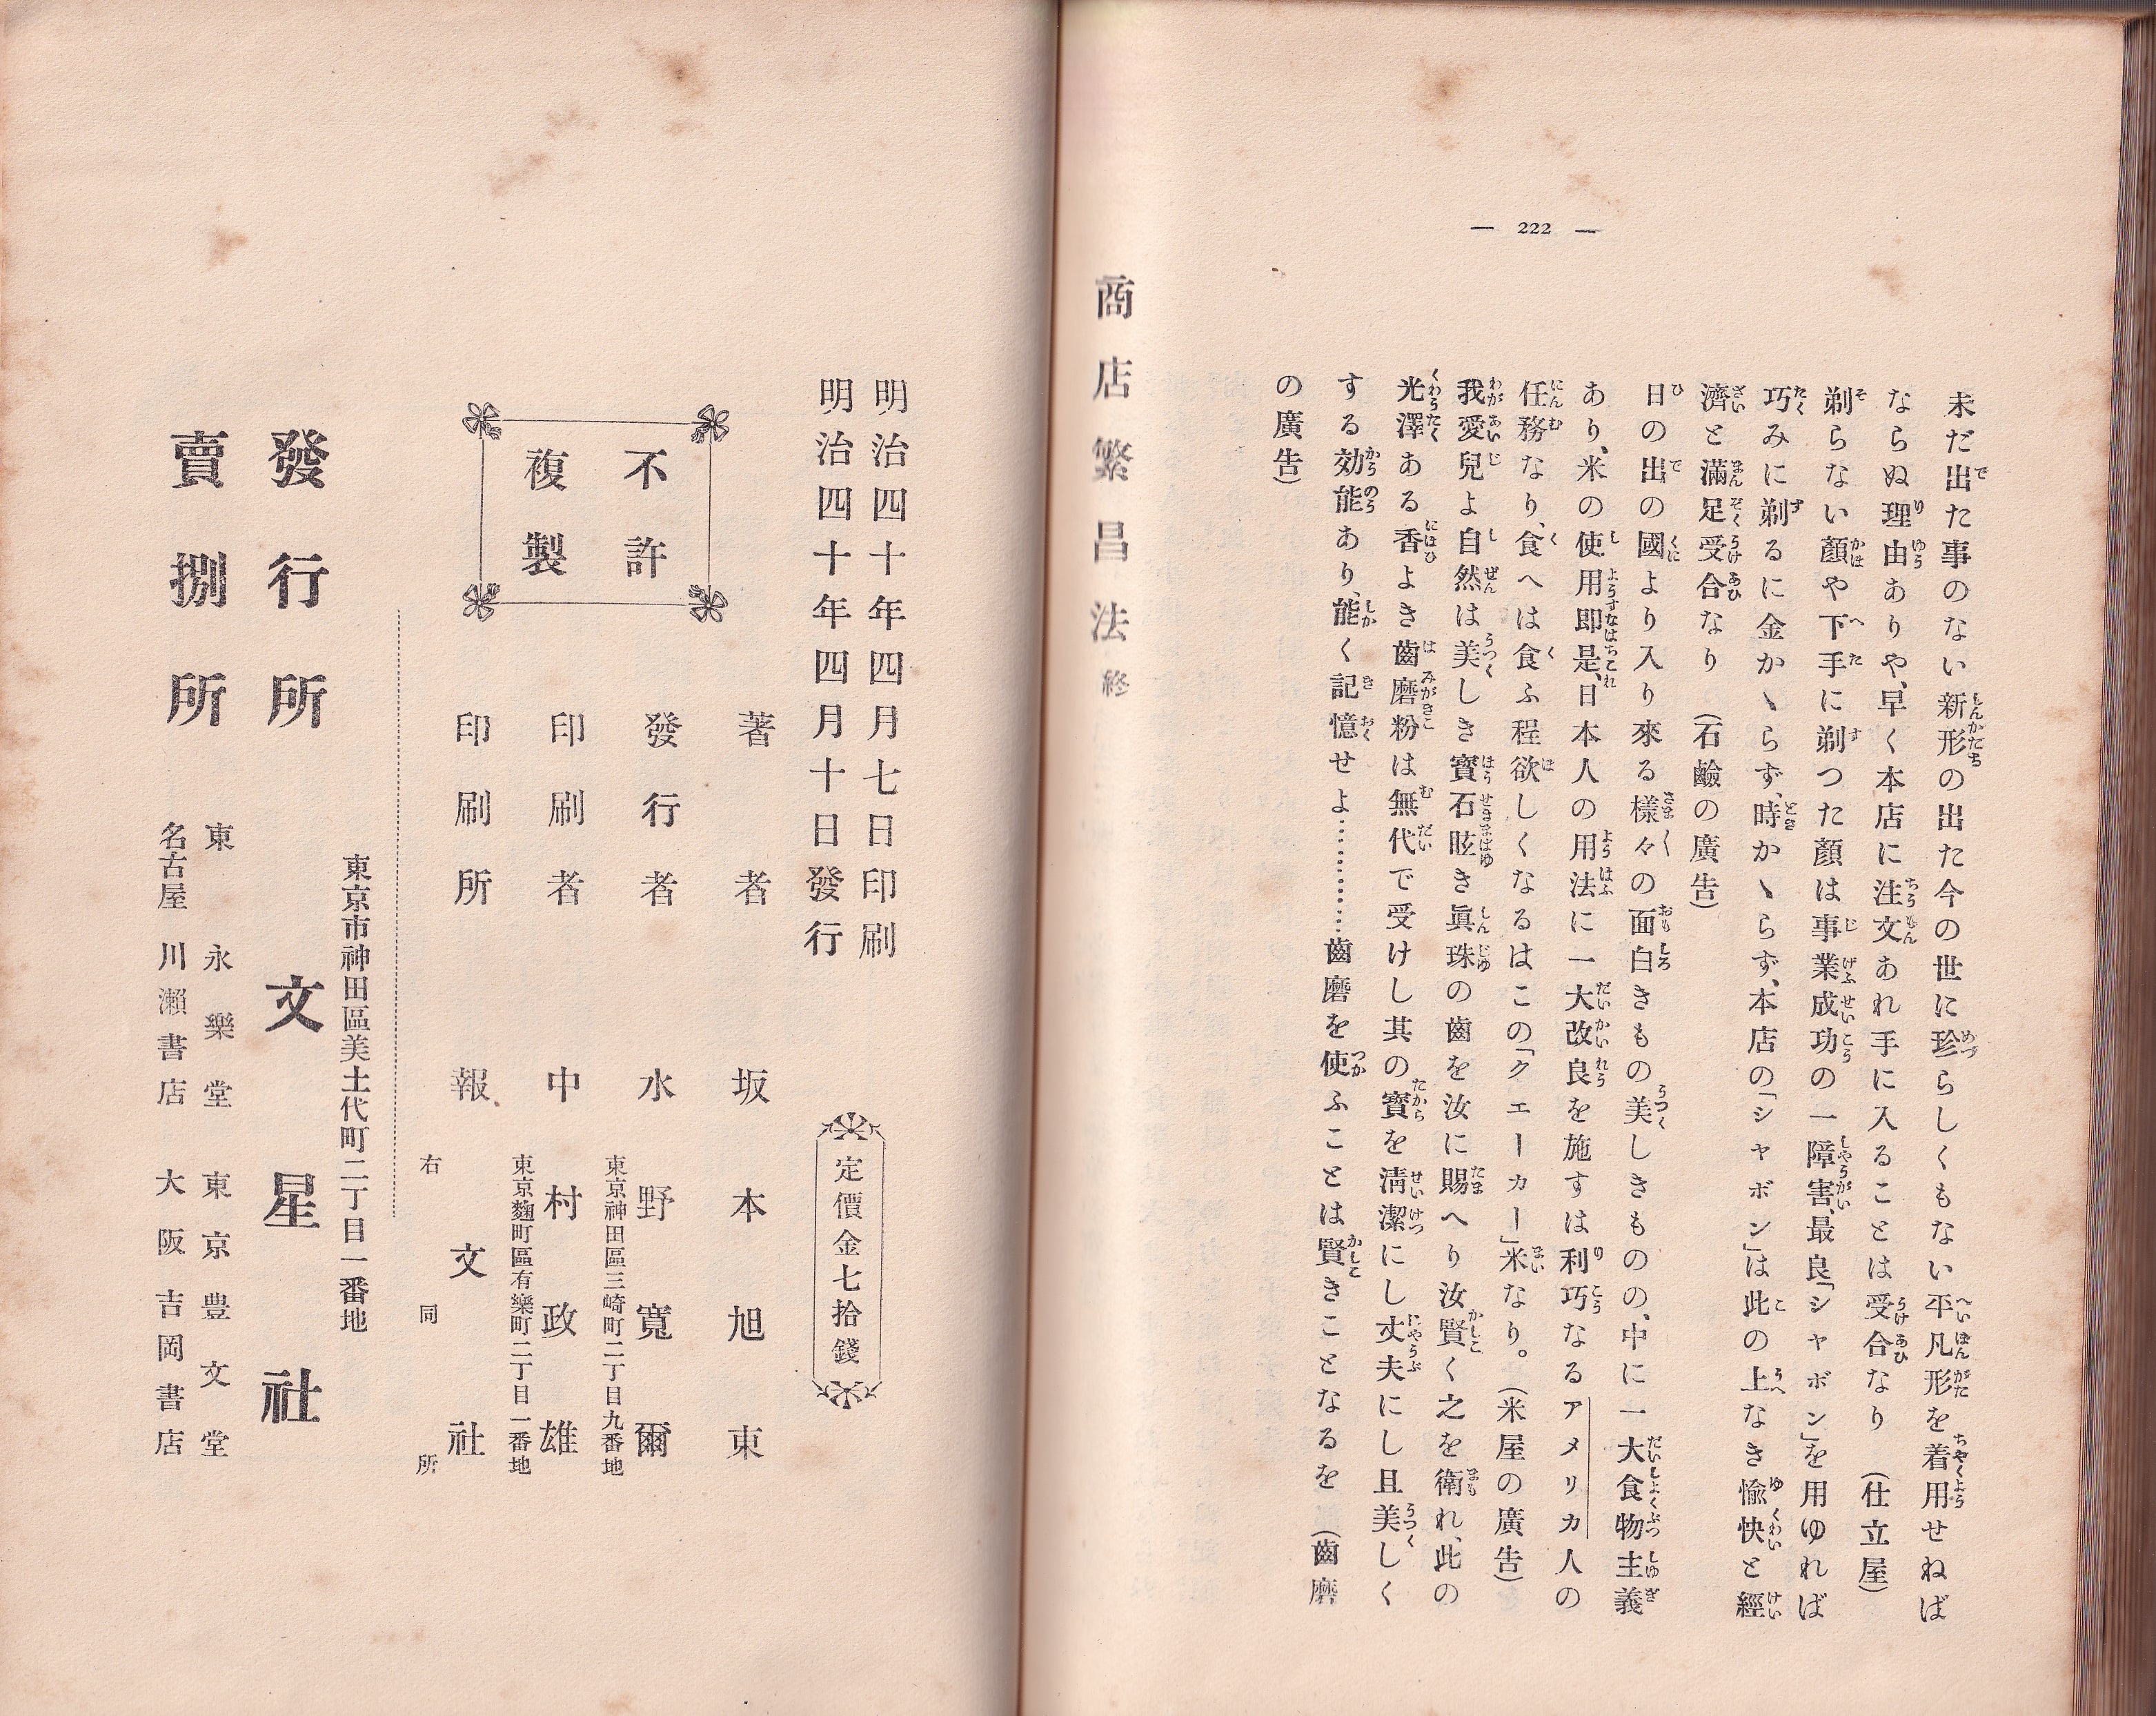 — 222 —
未だ出た事のない新形の出た今の世に珍らしくもない平凡形を着用せねば
ならぬ理由ありや、早く本店に注文あれ手に入ることは受合なり (仕立屋)
剃らない顔や下手に剃つた顔は事業成功の一障害、最良「シャボン」を用ゆれば
巧みに剃るに金かゝらず、時かゝらず、本店の「シャボン」は此の上なき愉快と經
濟と滿足受合なり (石鹼の廣告)
日の出の國より入り來る樣々の面白きもの美しきものの、中に一大食物主義
あり、米の使用即是、日本人の用法に一大改良を施すは利巧なるアメリカ人の
任務なり、食へは食ふ程欲しくなるはこの「クエーカー」米なり。(米屋の廣告)
我愛兒よ自然は美しき寶石眩き眞珠の齒を汝に賜へり汝賢く之を衛れ、此の
光澤ある香よき齒磨粉は無代で受けし其の寶を淸潔にし丈夫にし且美しく
する効能あり、能く記憶せよ…………齒磨を使ふことは賢きことなるを (齒磨
の廣告)
商店繁昌法 終
明治四十年四月七日印刷
明治四十年四月十日發行
定價金七拾錢
不許
複製
著者 坂本旭東
發行者 水野寬爾
東京神田區三崎町二丁目九番地
印刷者 中村政雄
東京麴町區有樂町二丁目一番地
印刷所 報文社
右同所
東京市神田區美土代町二丁目一番地
發行所 文星社
賣捌所
東 永樂堂 東京豊文堂
名古屋 川瀨書店 大阪吉岡書店